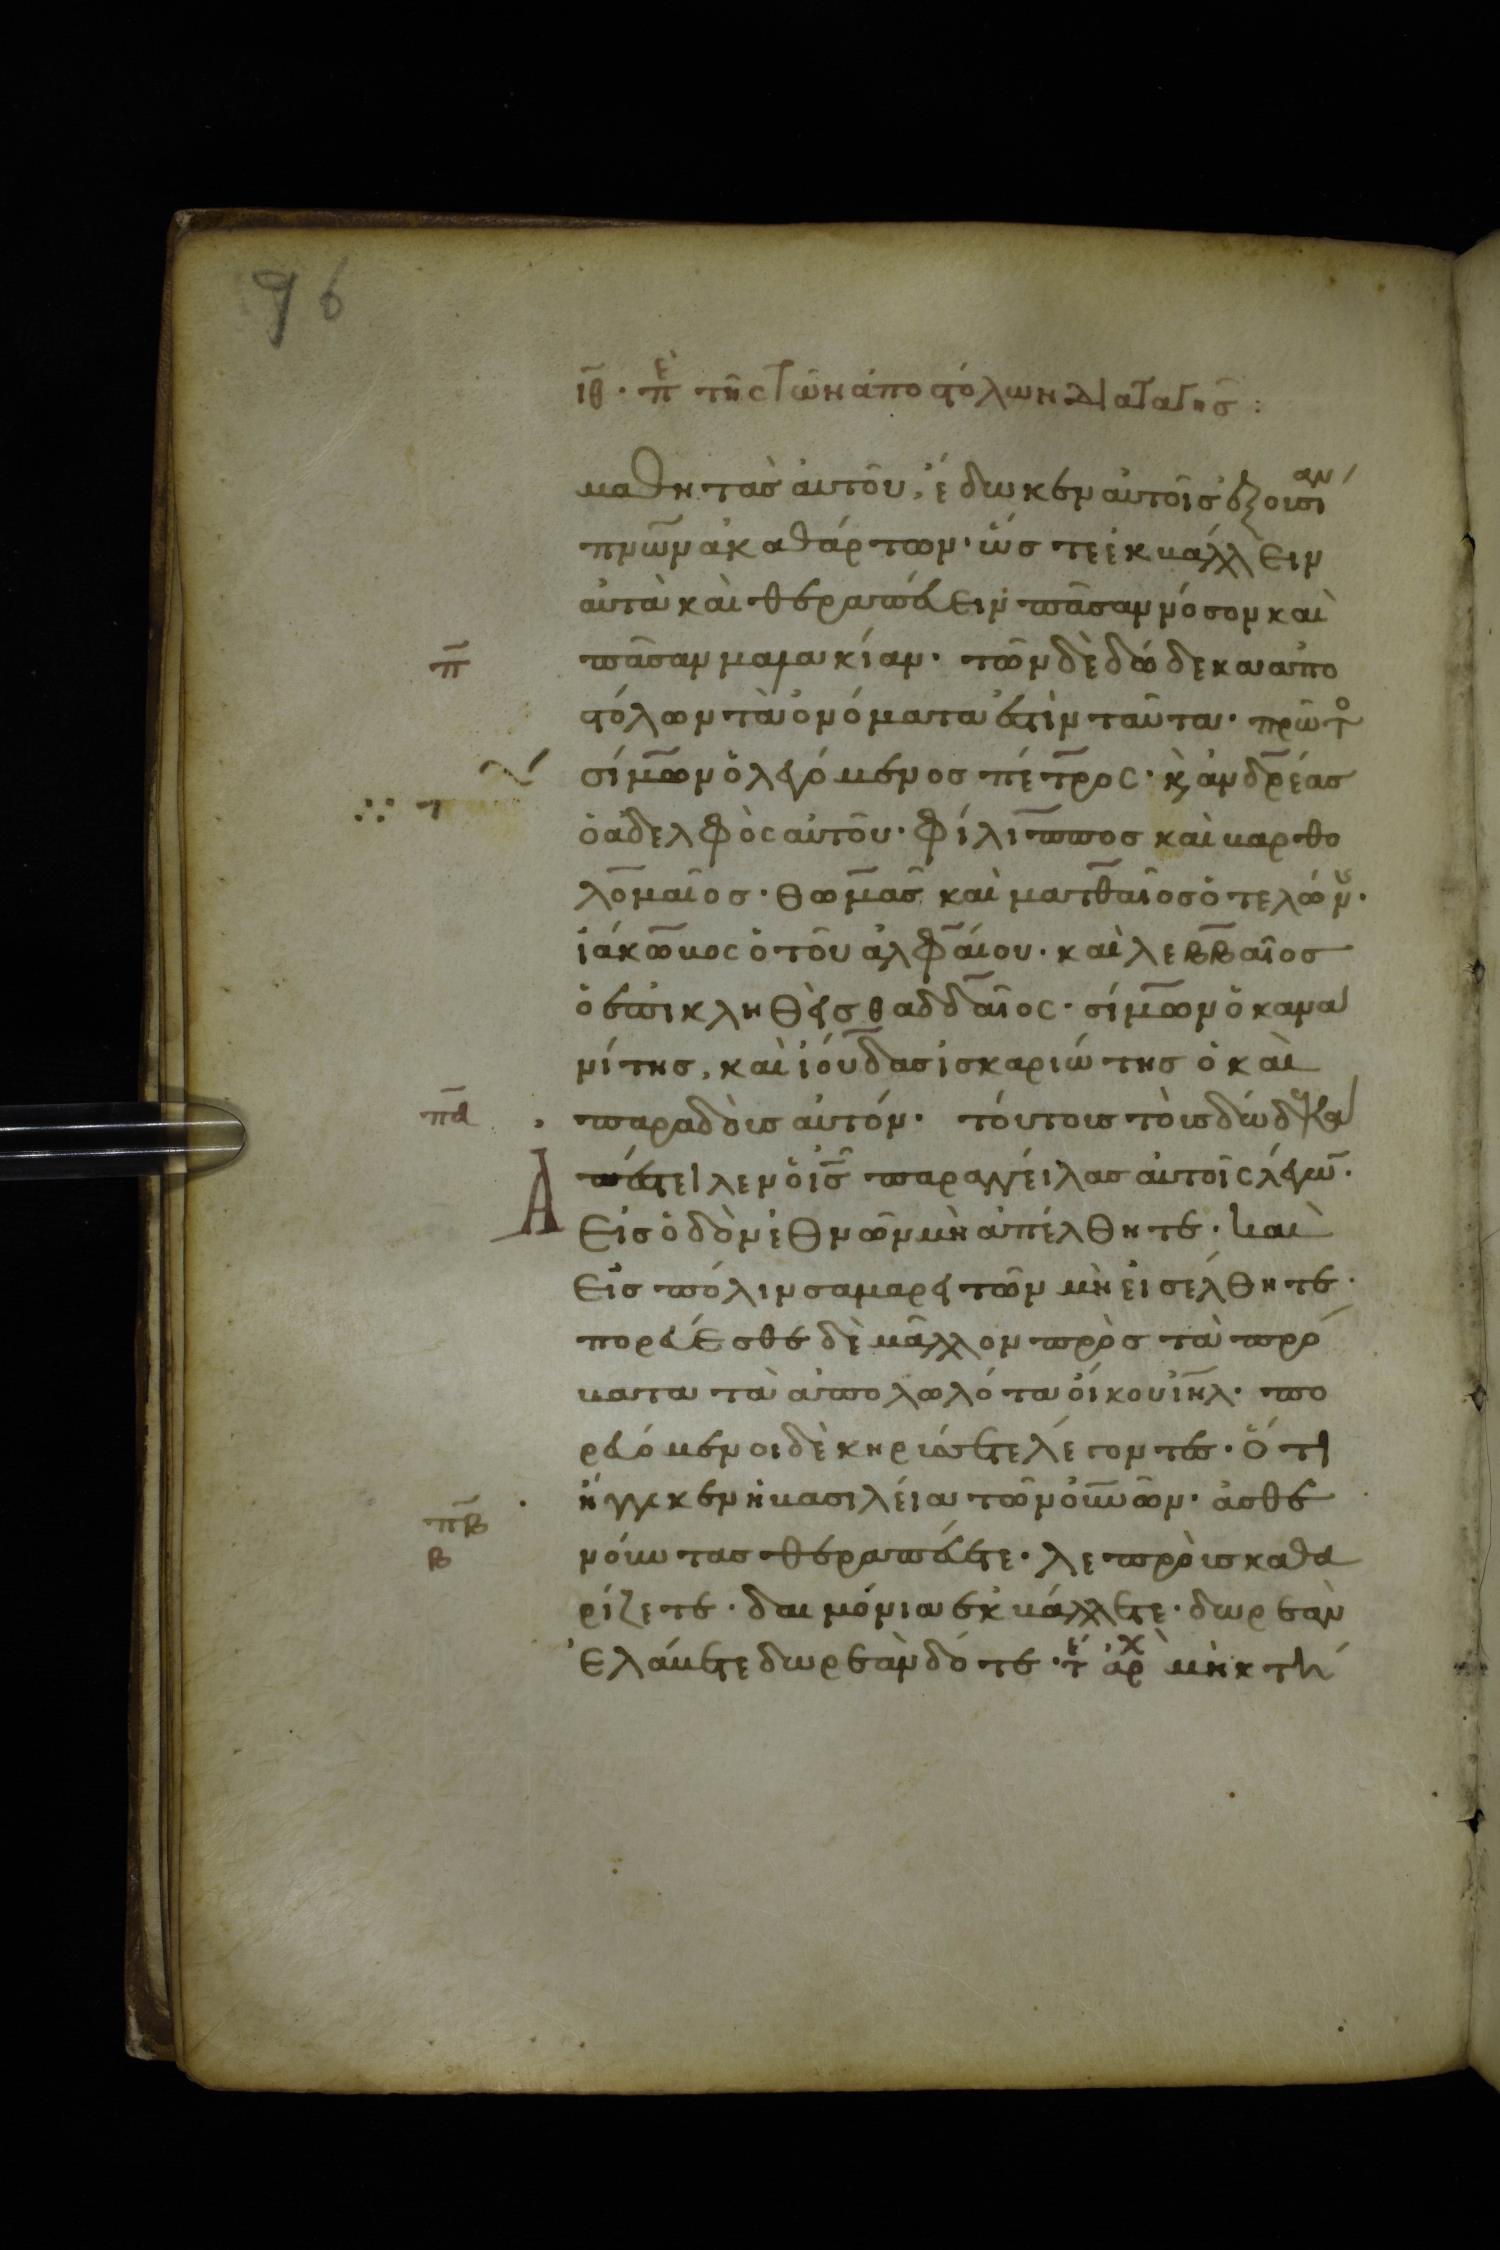 96
ιθ· πὲ τῆς τῶν ἀποστόλων διαταγῆς:
μαθητὰς αὐτοῦ, ἔδωκεν αὐτοῖς ἐξουσίαν
πνῶν ἀκαθάρτων· ὥστε ἐκβάλλειν
αὐτὰ καὶ θεραπεύειν πᾶσαν νόσον καὶ
π̅ πᾶσαν μαλακίαν· τῶν δὲ δώδεκα ἀπο
στόλων τὰ ὀνόματα ἐστὶν ταῦτα· πρῶτο
σίμων ὁ λεγόμενος πέτρος· κ ἀνδρέας
ὁ ἀδελφὸς αὐτοῦ· φίλιππος καὶ βαρθο
λομαῖος· θωμᾶς καὶ ματθαῖος ὁ τελώνης·
ἰάκωβος ὁ τοῦ ἀλφαίου· καὶ λεββαῖος
ὁ ἐπικληθεὶς θαδδαῖος· σίμων ὁ κανα
νίτης, καὶ ἰούδας ἰσκαριώτης ὁ καὶ
πα̅ παραδοὺς αὐτόν· τούτους τοὺς δώδεκα
Α πέστειλεν ὁ ι̅ς̅ παραγγείλας αὐτοῖς λέγων·
Εἰς ὁδὸν ἐθνῶν μὴ ἀπέλθητε· καὶ
εἰς πόλιν σαμαρειτῶν μὴ εἰσέλθητε·
πορεύεσθε δὲ μᾶλλον πρὸς τὰ πρό
βατα τὰ ἀπολωλότα οἴκου ι̅η̅λ̅· πο
ρευόμενοι δὲ κηρύσσετε λέγοντες· ὅτι
ἤγγικεν ἡ βασιλεία τῶν ο̅υ̅ν̅ων· ἀσθε
πβ̅ β νοῦντας θεραπεύετε· λεπροὺς καθα
ρίζετε· δαιμόνια ἐκβάλλετε· δωρεὰν
ἐλάβετε δωρεὰν δότε· τέ ἀρχ μὴ κτή